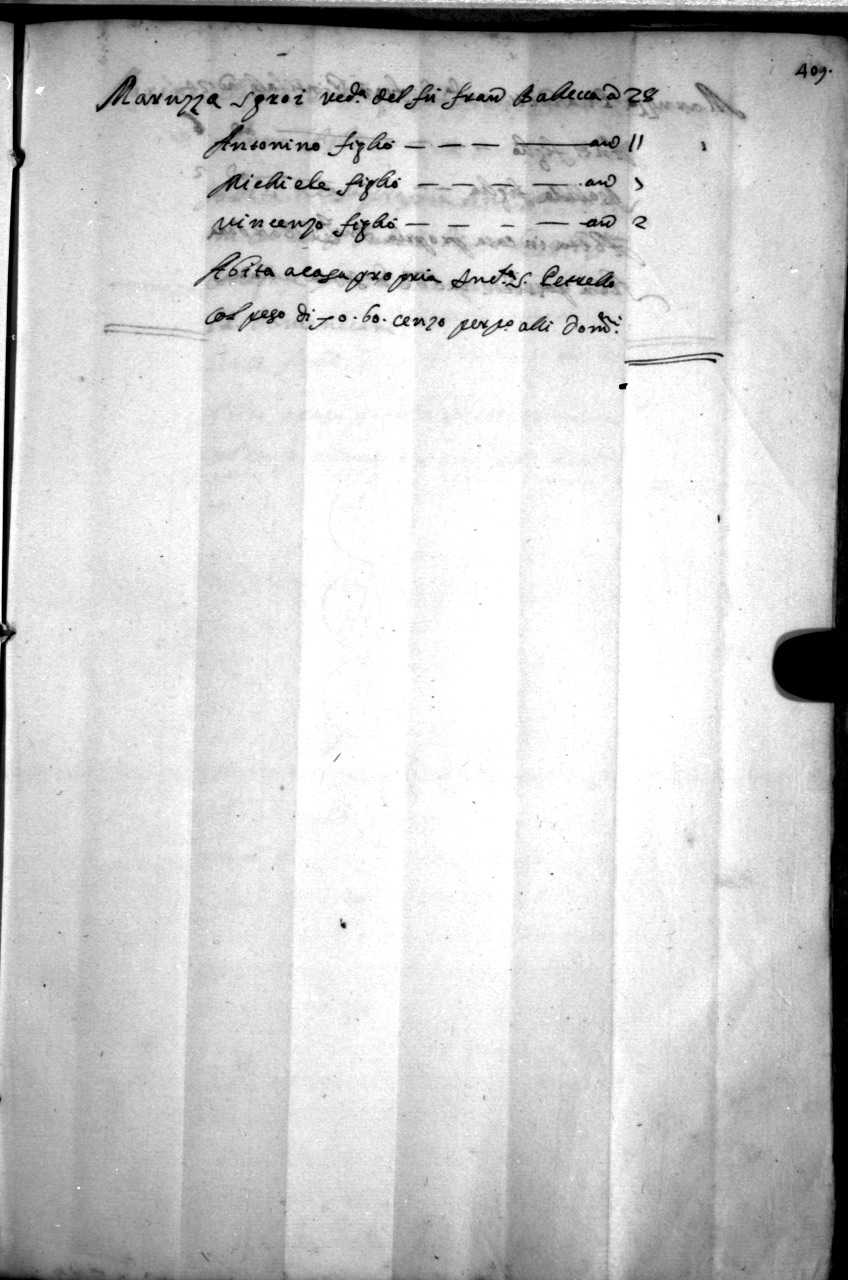 409.
Maruzza Sgroi ved.a del fù Fran.o Ballecca d 28
Antonino figlio — — — — an 11
Michiele figlio — — — — an 5
Vincenzo figlio — — — — an 2
Abita a casa propria S. Petrello
Col peso di 0.60. cenzo alli